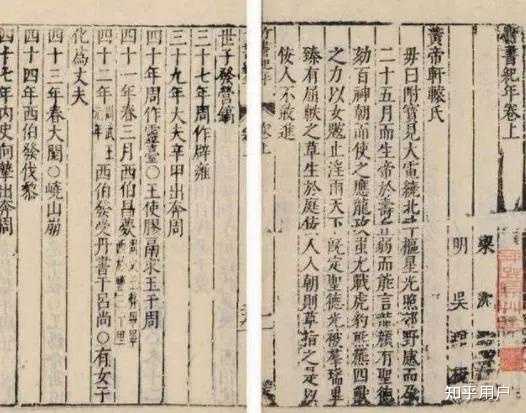 竹書紀年卷上
梁
明 吳
黃帝軒轅氏
母曰附寶見大電繞北斗樞星光照郊野感而孕
二十五月而生帝於壽 弱而能言龍顏有聖德
劾百神朝而使之應龍攻蚩尤戰虎豹熊羆四獸
之力以女魃止淫雨天下既定聖德光被羣瑞畢
臻有屈軼之草生於庭佞人入朝則草指之是以
佞人不敢進
世子發營鎬
三十七年周作辟雍
三十九年大夫辛甲出奔周
四十年周作靈臺○王使膠鬲求玉于周
四十一年春三月西伯昌薨
四十二年 西伯發受丹書于呂尚○有女子
化為丈夫
四十三年春大閱○嶢山崩
四十四年西伯發伐黎
四十七年內史向摯出奔周
知乎用户